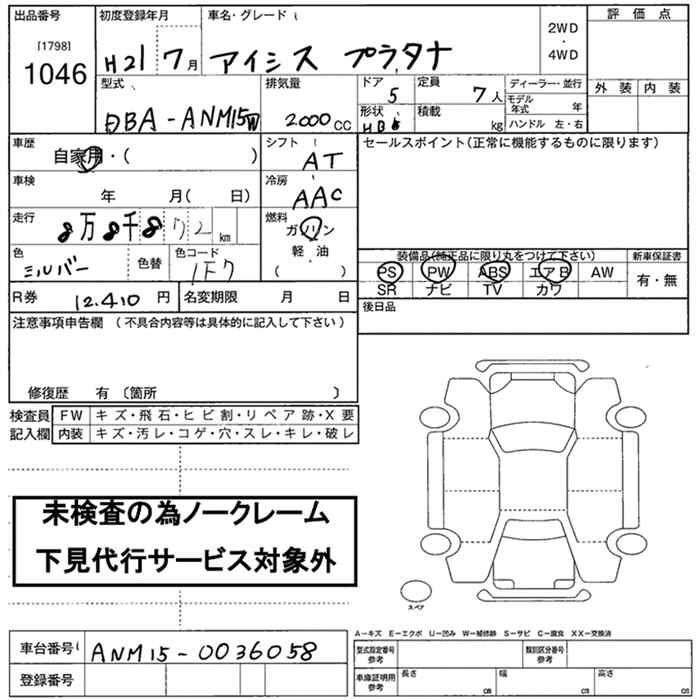 出品番号 初度登録年月 車名・グレード 評価点
[1798]
1046 H21 7月 アイシス プラタナ 2WD・4WD
外装 内装
型式 排気量 ドア 5 定員 7人 ディーラー・並行
DBA-ANM15W 2000CC 形状 HB 積載 kg モデル年式 年
ハンドル 左・右
車歴 自家用・( ) シフト AT セールスポイント(正常に機能するものに限ります)
車検 年 月( 日) 冷房 AAC
走行 8万8千872 km 燃料 ガソリン・軽油 ( )
色 シルバー 色替 色コード 1F7
装備品(純正品に限り丸をつけて下さい) 新車保証書
PS PW ABS エアB AW 有・無
SR ナビ TV カワ
R券 12.410 円 名変期限 月 日 後日品
注意事項申告欄 (不具合内容等は具体的に記入して下さい)
修復歴 有 〔箇所 〕
検査員 FW キズ・飛石・ヒビ割・リペア跡・X要
記入欄 内装 キズ・汚レ・コゲ・穴・スレ・キレ・破レ
未検査の為ノークレーム
下見代行サービス対象外
スペア
A−キズ E−エクボ U−凹み W−補修跡 S−サビ C−腐食 XX−交換済
車台番号 ANM15-0036058 型式指定番号 参考 類別区分番号 参考
登録番号 車庫証明用 参考 長さ cm 幅 cm 高さ cm